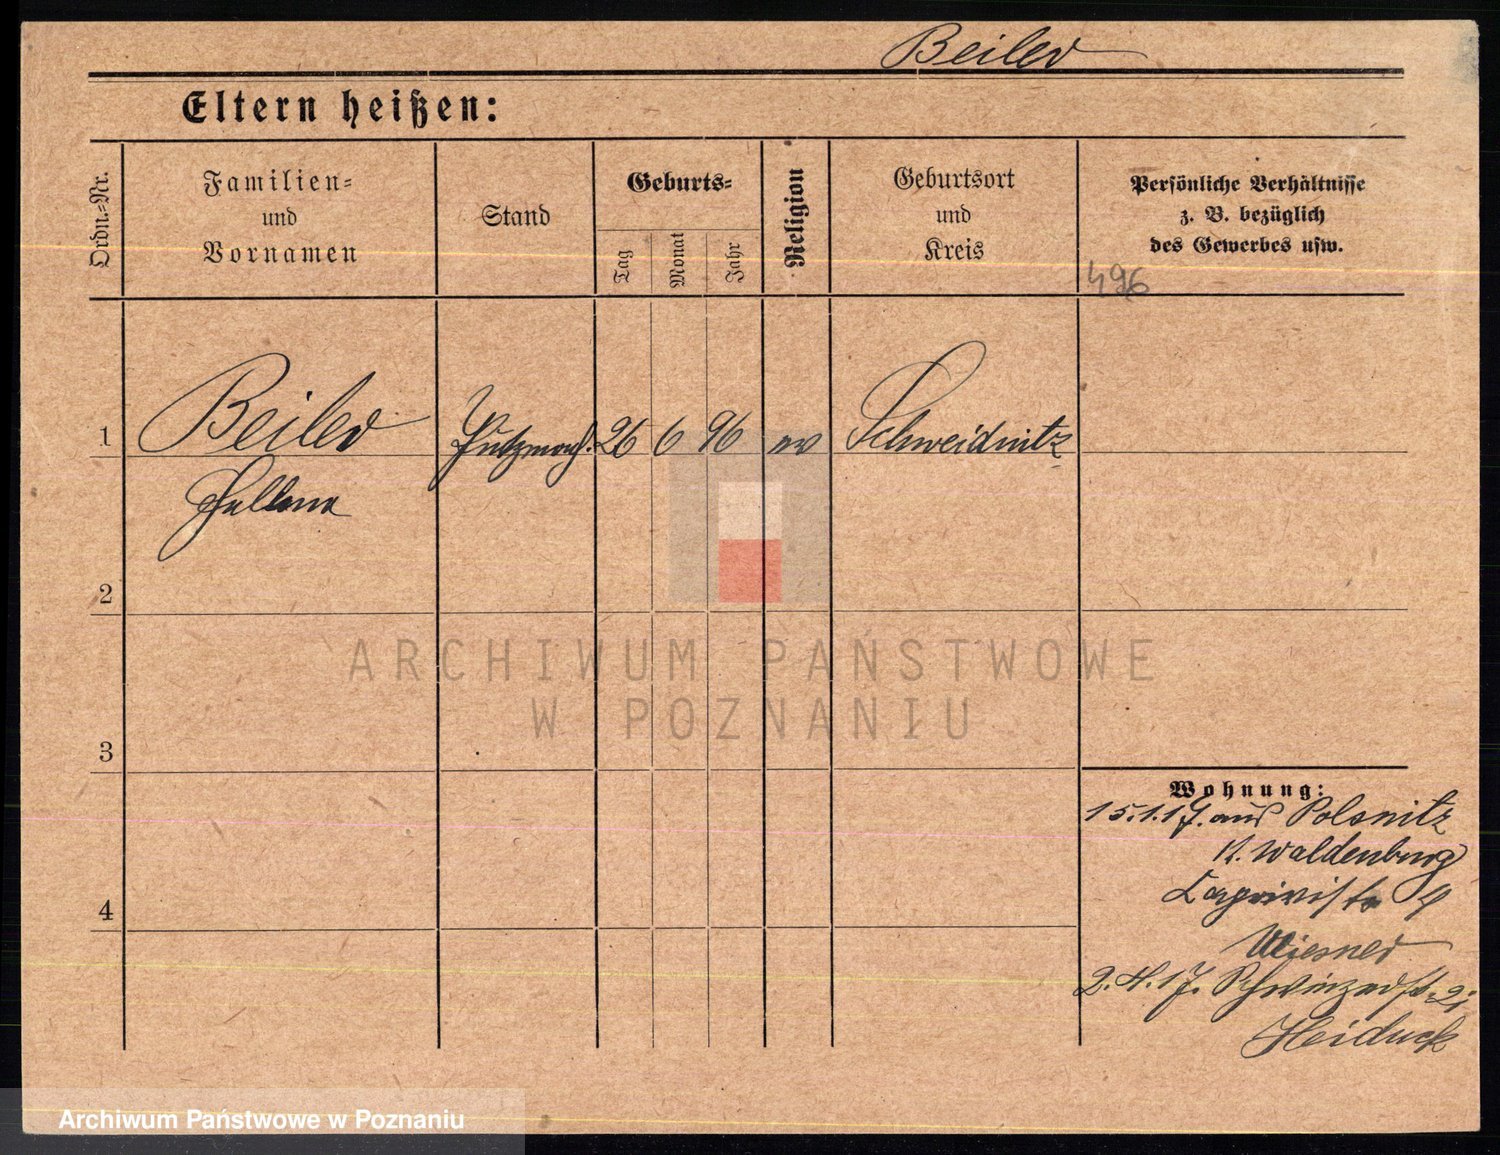 Beiler
Eltern heißen:
Ordn.-Nr.
Familien- und Vornamen
Stand
Geburts-
Tag
Monat
Jahr
Religion
Geburtsort und Kreis
Persönliche Verhältnisse
z. B. bezüglich
des Gewerbes usw.
496
1 Beiler Putzmach. 26 6 96 ev Schweidnitz
2
3
4
Wohnung:
15.1.17. aus Polsnitz
K. Waldenburg
Caprivistr
Wiesner
2.4.17.
Heiduck
ARCHIWUM PAŃSTWOWE
W POZNANIU
Archiwum Państwowe w Poznaniu